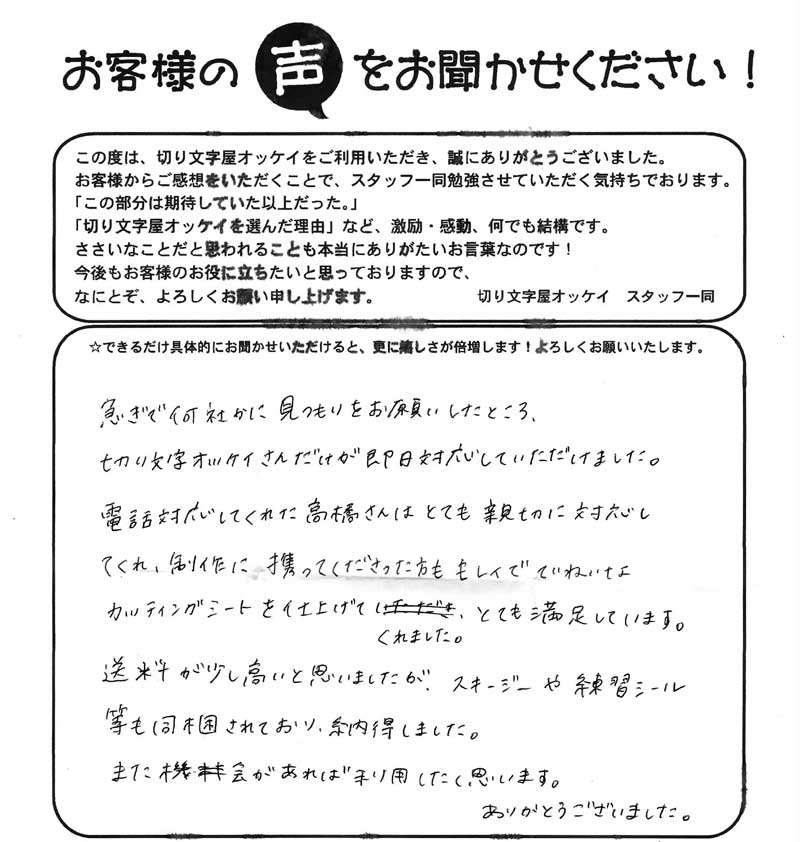 お客様の声をお聞かせください！
この度は、切り文字屋オッケイをご利用いただき、誠にありがとうございました。
お客様からご感想をいただくことで、スタッフ一同勉強させていただく気持ちでおります。
「この部分は期待していた以上だった。」
「切り文字屋オッケイを選んだ理由」など、激励・感動、何でも結構です。
ささいなことだと思われることも本当にありがたいお言葉なのです！
今後もお客様のお役に立ちたいと思っておりますので、
なにとぞ、よろしくお願い申し上げます。 切り文字屋オッケイ スタッフ一同
☆できるだけ具体的にお聞かせいただけると、更に嬉しさが倍増します！よろしくお願いいたします。
急ぎで何社かに見つもりをお願いしたところ、
切り文字オッケイさんだけが即日対応していただけました。
電話対応してくれた高橋さんはとても親切に対応し
てくれ、制作に携ってくださった方も キレイで ていねいな
カッティングシートを仕上げて、とても満足しています。
くれました。
送料が少し高いと思いましたが、スキージーや練習シール
等も同梱されており、納得しました。
また機会があれば利用したく思います。
ありがとうございました。